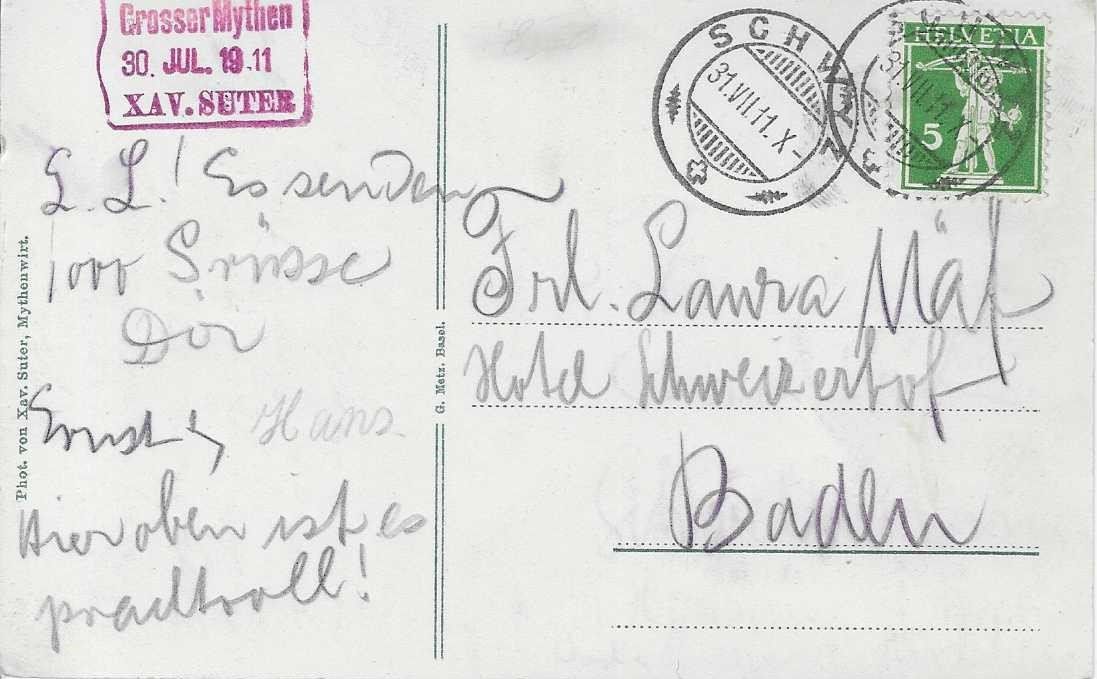 Grosser Mythen
30. JUL. 19.11
XAV. SUTER
L. L.! Es senden
1000 Grüsse
Dir
Ernst & Hans
Hier oben ist es
prachtvoll!
Phot. von Xav. Suter, Mythenwirt.
G. Metz, Basel.
SCHWYZ
31.VII.11.X-
HELVETIA
5
Frl. Laura Näf
Hotel Schweizerhof
Baden